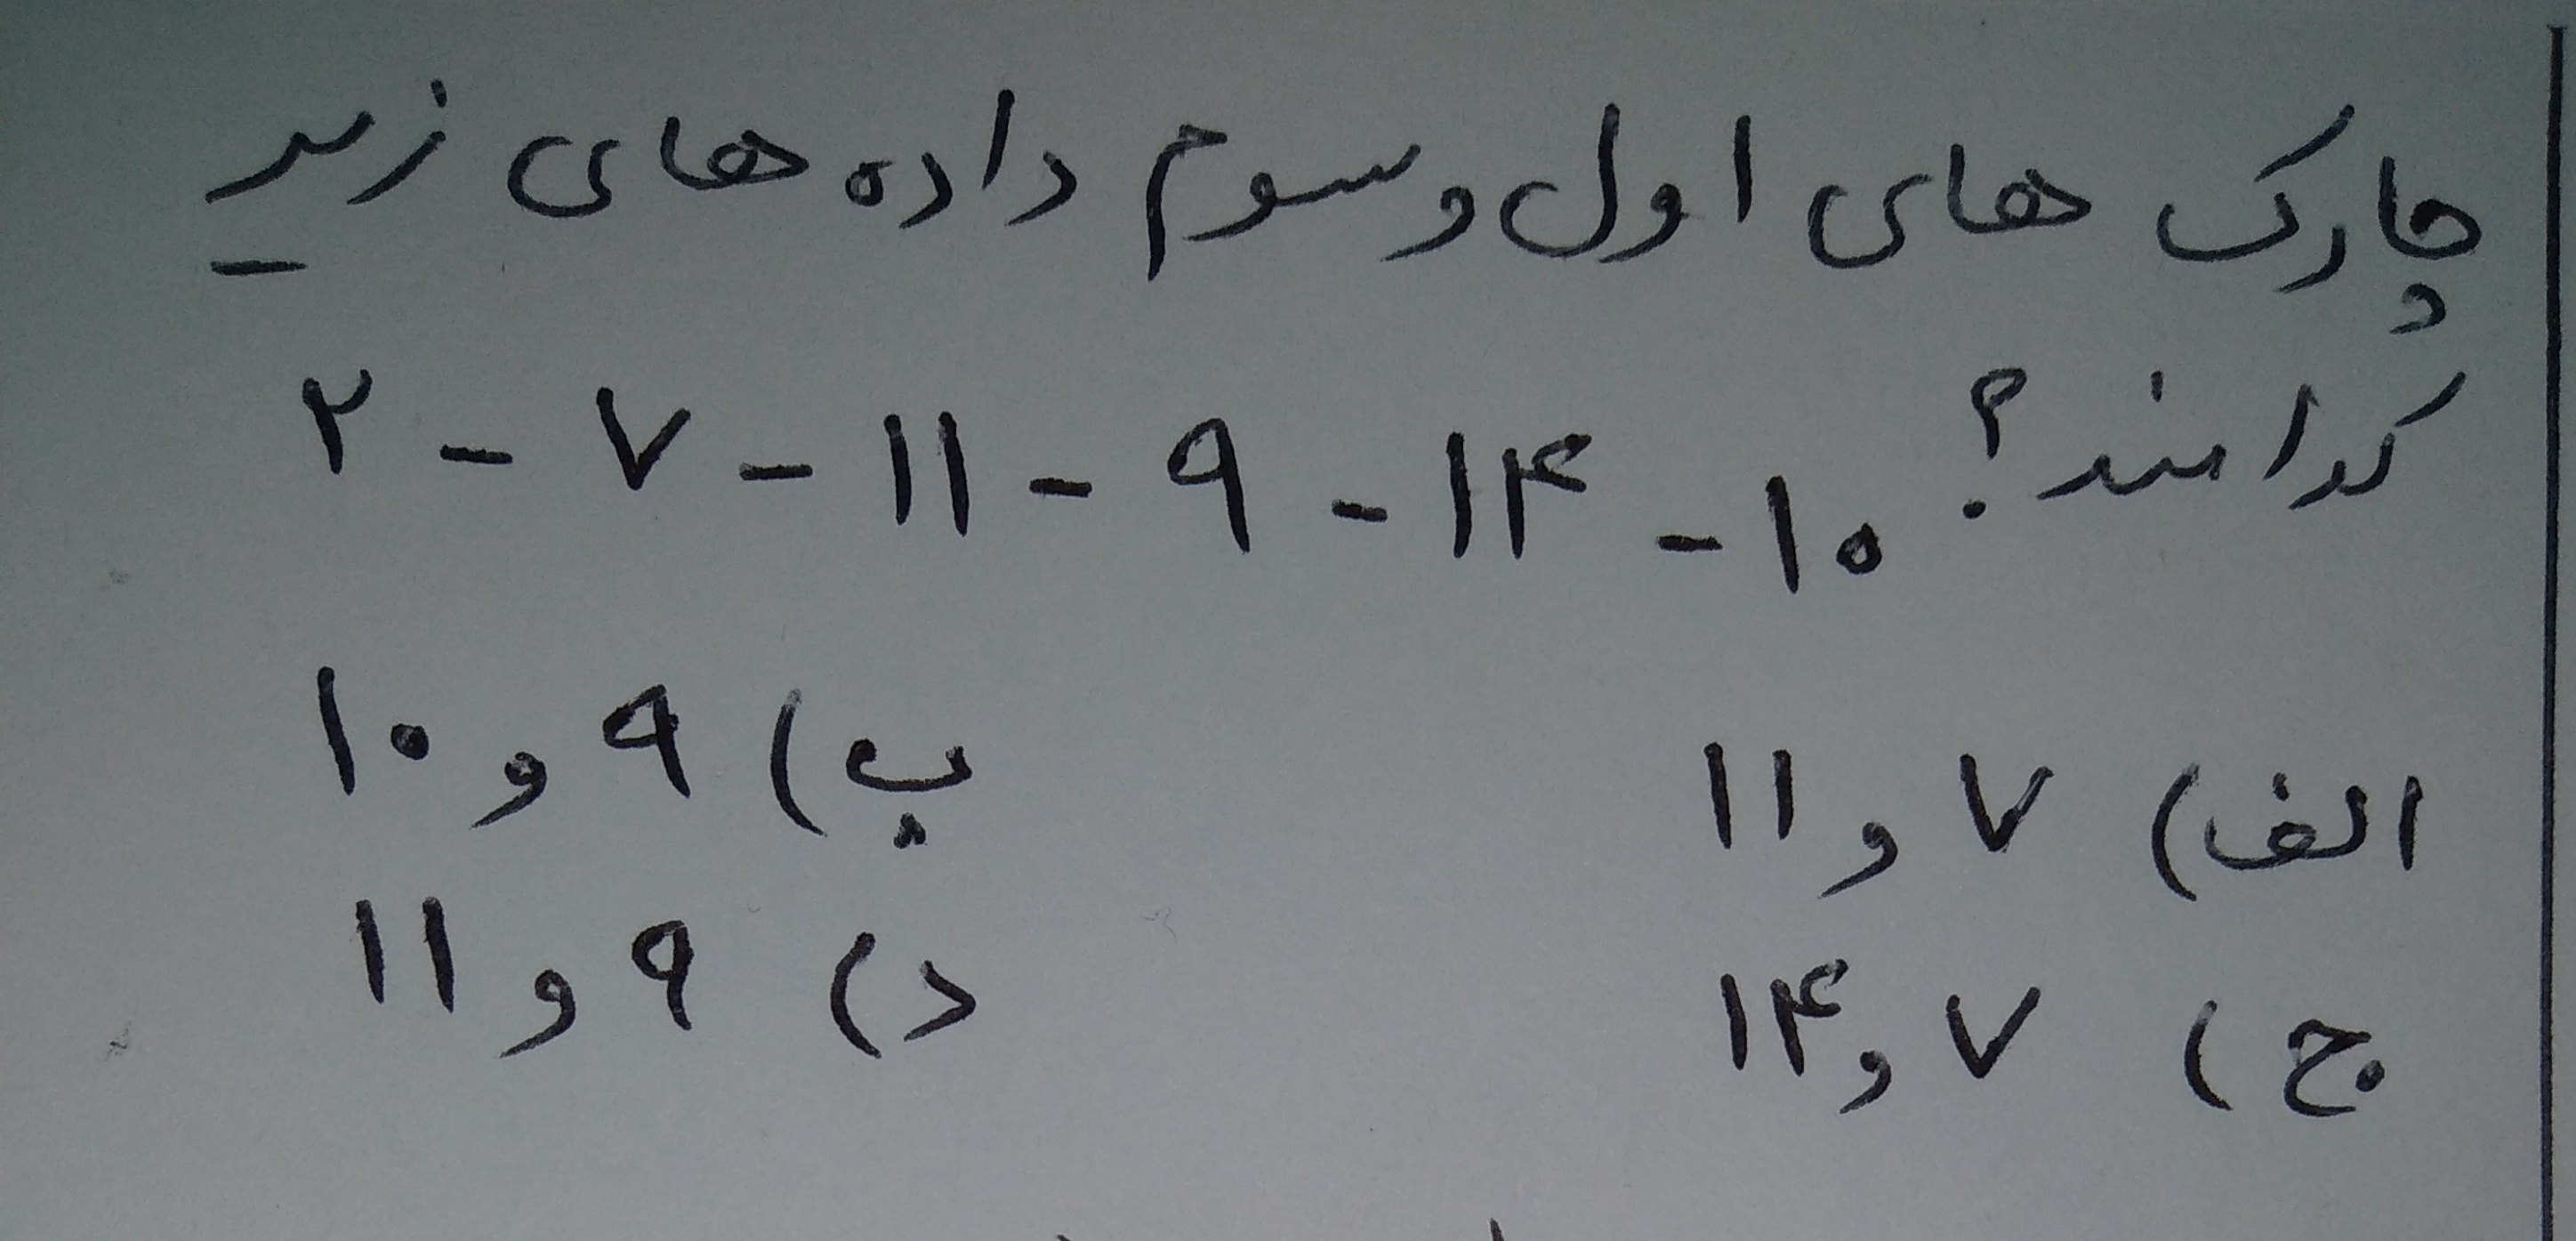 چارک های اول و سوم داده های زیر
کدامند؟ ۱۰ - ۱۴ - ۹ - ۱۱ - ۷ - ۲
الف) ۷ و ۱۱ ب) ۹ و ۱۰
ج) ۷ و ۱۴ د) ۹ و ۱۱